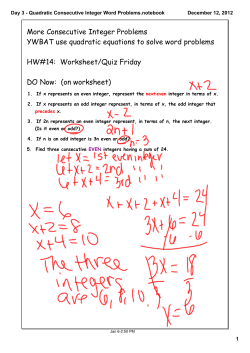 Day 3 - Quadratic Consecutive Integer Word Problems.notebook December 12, 2012
More Consecutive Integer Problems
YWBAT use quadratic equations to solve word problems
HW#14: Worksheet/Quiz Friday
DO Now: (on worksheet)
x+2
1. If x represents an even integer, represent the next even integer in terms of x.
2. If x represents an odd integer represent, in terms of x, the odd integer that
precedes x. x-2
3. If 2n represents an even integer represent, in terms of n, the next integer.
(Is it even or odd?) 2n+1
4. If n is an odd integer is 3n even or odd? n=3
5. Find three consecutive EVEN integers having a sum of 24.
let x = 1st even integer
let x+2 = 2nd " " "
let x+4 = 3rd " " "
x+x+2+x+4=24
x=6
x+2=8
x+4=10
3x+6=24
-6 -6
3x=18
3 3
x=6
The three
integers
are 6,8,10.
Jan 6-2:50 PM
1